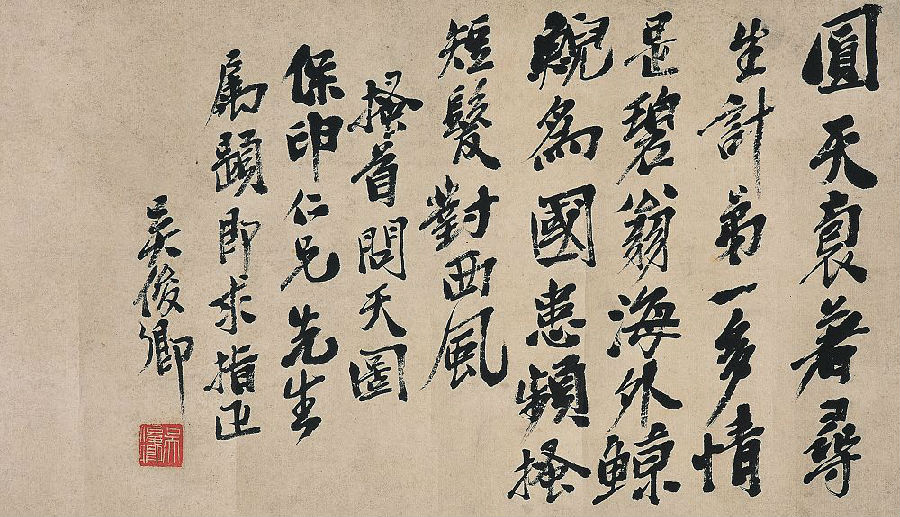 圓天裹著尋
生計第一多情
是碧翁海外鯨
鯢爲國患頻搔
短髮對西風
搔首問天圖
保印仁兄先生
属題即求指正
吳俊卿